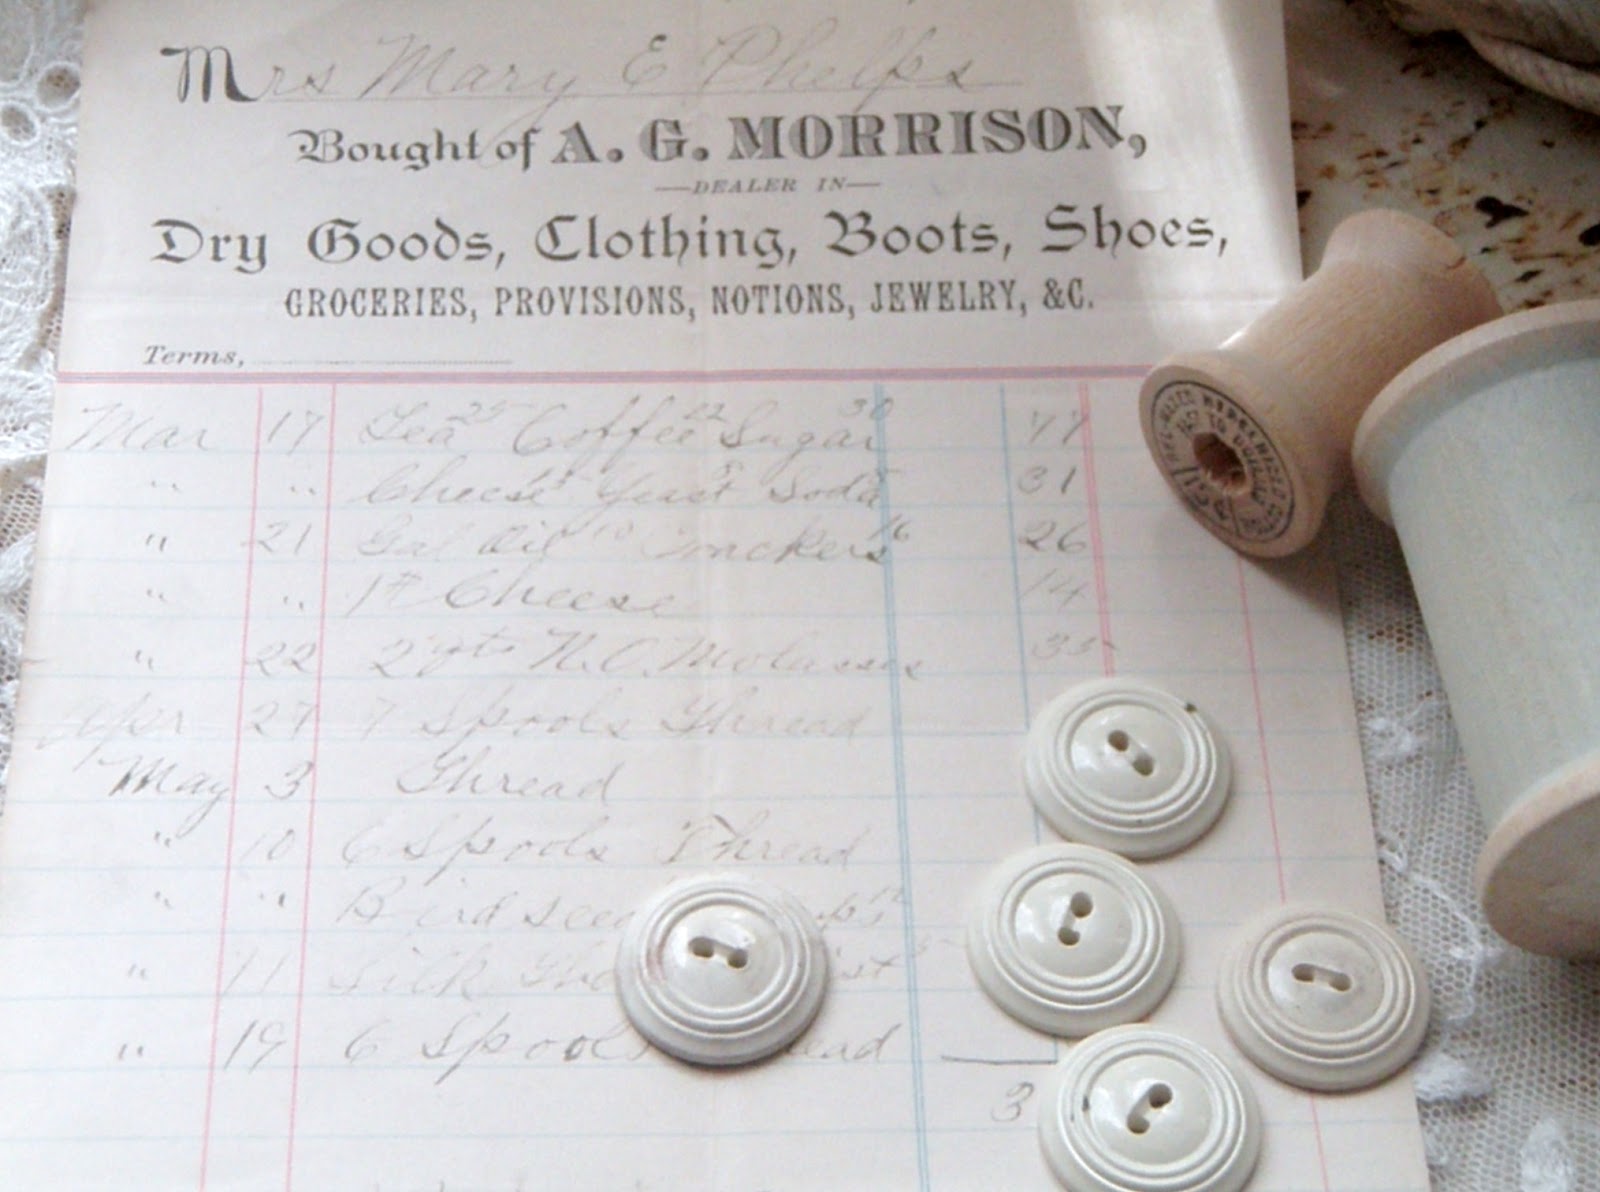 Mrs Mary E Phelps
Bought of A. G. MORRISON,
—DEALER IN—
Dry Goods, Clothing, Boots, Shoes,
GROCERIES, PROVISIONS, NOTIONS, JEWELRY, &C.
Terms,
Mar 17 Tea 25 Coffee 22 Sugar 30 77
" " Cheese Yeast Soda 31
" 21 Gal Oil 10 Crackers 16 26
" " 1# Cheese 14
" 22 2 qts N.O. Molasses 35
Apr 27 7 Spools Thread
May 3 Thread
" 10 6 Spools Thread
" " Bird
" 11 Silk
" 19 6 Spools
3